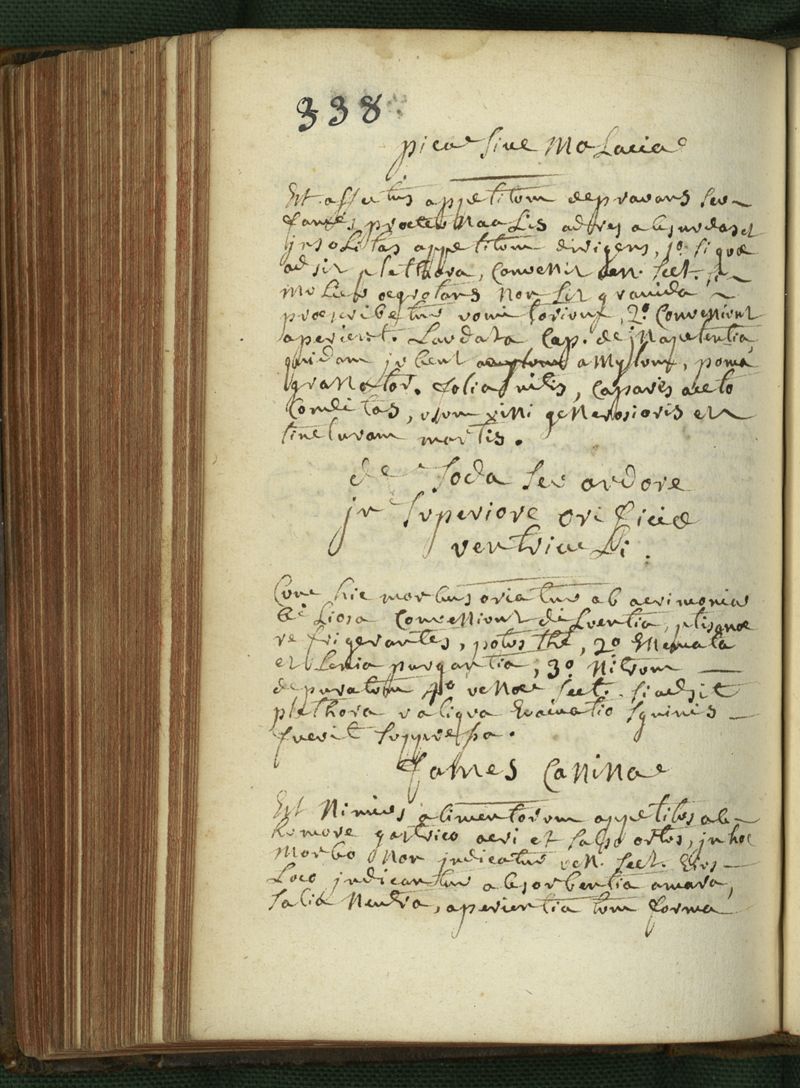 338
pica sive Malacia
Est affectus appetitum depravans seu
fames praeternaalis ad res absurdas et
insolitas appetitum dirigens, 1o. si quae
adsit plethora, convenit ven. sect. si
mulier aegrotans non sit gravida,
proescribetur vomitorium, 2o. conveniunt
aperient. Laudata Cap. de inapetentia,
quidam jubent amylum, poma
granator. folia vitis, capares aceto
conditas, usum vini generosioris et
tincturam martis.
de Soda seu ardore
in Superiore orificio
ventriculi.
Cum hic morbus oriatur ab acrimonia
biliosa conveniunt diluentia, ptisanae
refrigerantes, potus thé, 2o Enemata
et Lenia purgantia, 3o. Nitrum
depuratum 4o. venae sect. si adsit
plethora v aliqua Evacuatio sguinis
fuerit suppressa.
fames Canina
Est Nimius alimentorum appetitus ab
humore gastrico acri et salso ortus, in hoc
Morbo Non indicatur ven. sect. Eius
Loco indicantur absorbentia amara,
salia Neutra, aperientia tum forma